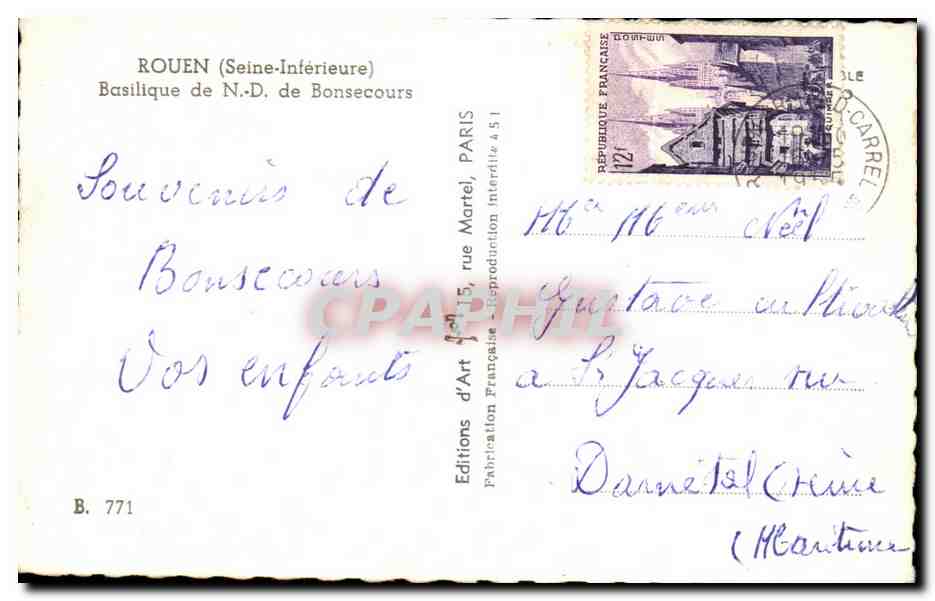 ROUEN (Seine-Inférieure)
Basilique de N.-D. de Bonsecours
Souvenirs de
Bonsecours
Vos enfants
B. 771
Editions d'Art Yvon, 15, rue Martel, PARIS
Fabrication Française - Reproduction interdite 451
RÉPUBLIQUE FRANÇAISE
POSTES
12f
QUIMPER
D-CARREL
Mr Meur Noël
Gustave cultivateur
a St Jacques sur
Darnétal Seine
(Maritime
CPAPHIL